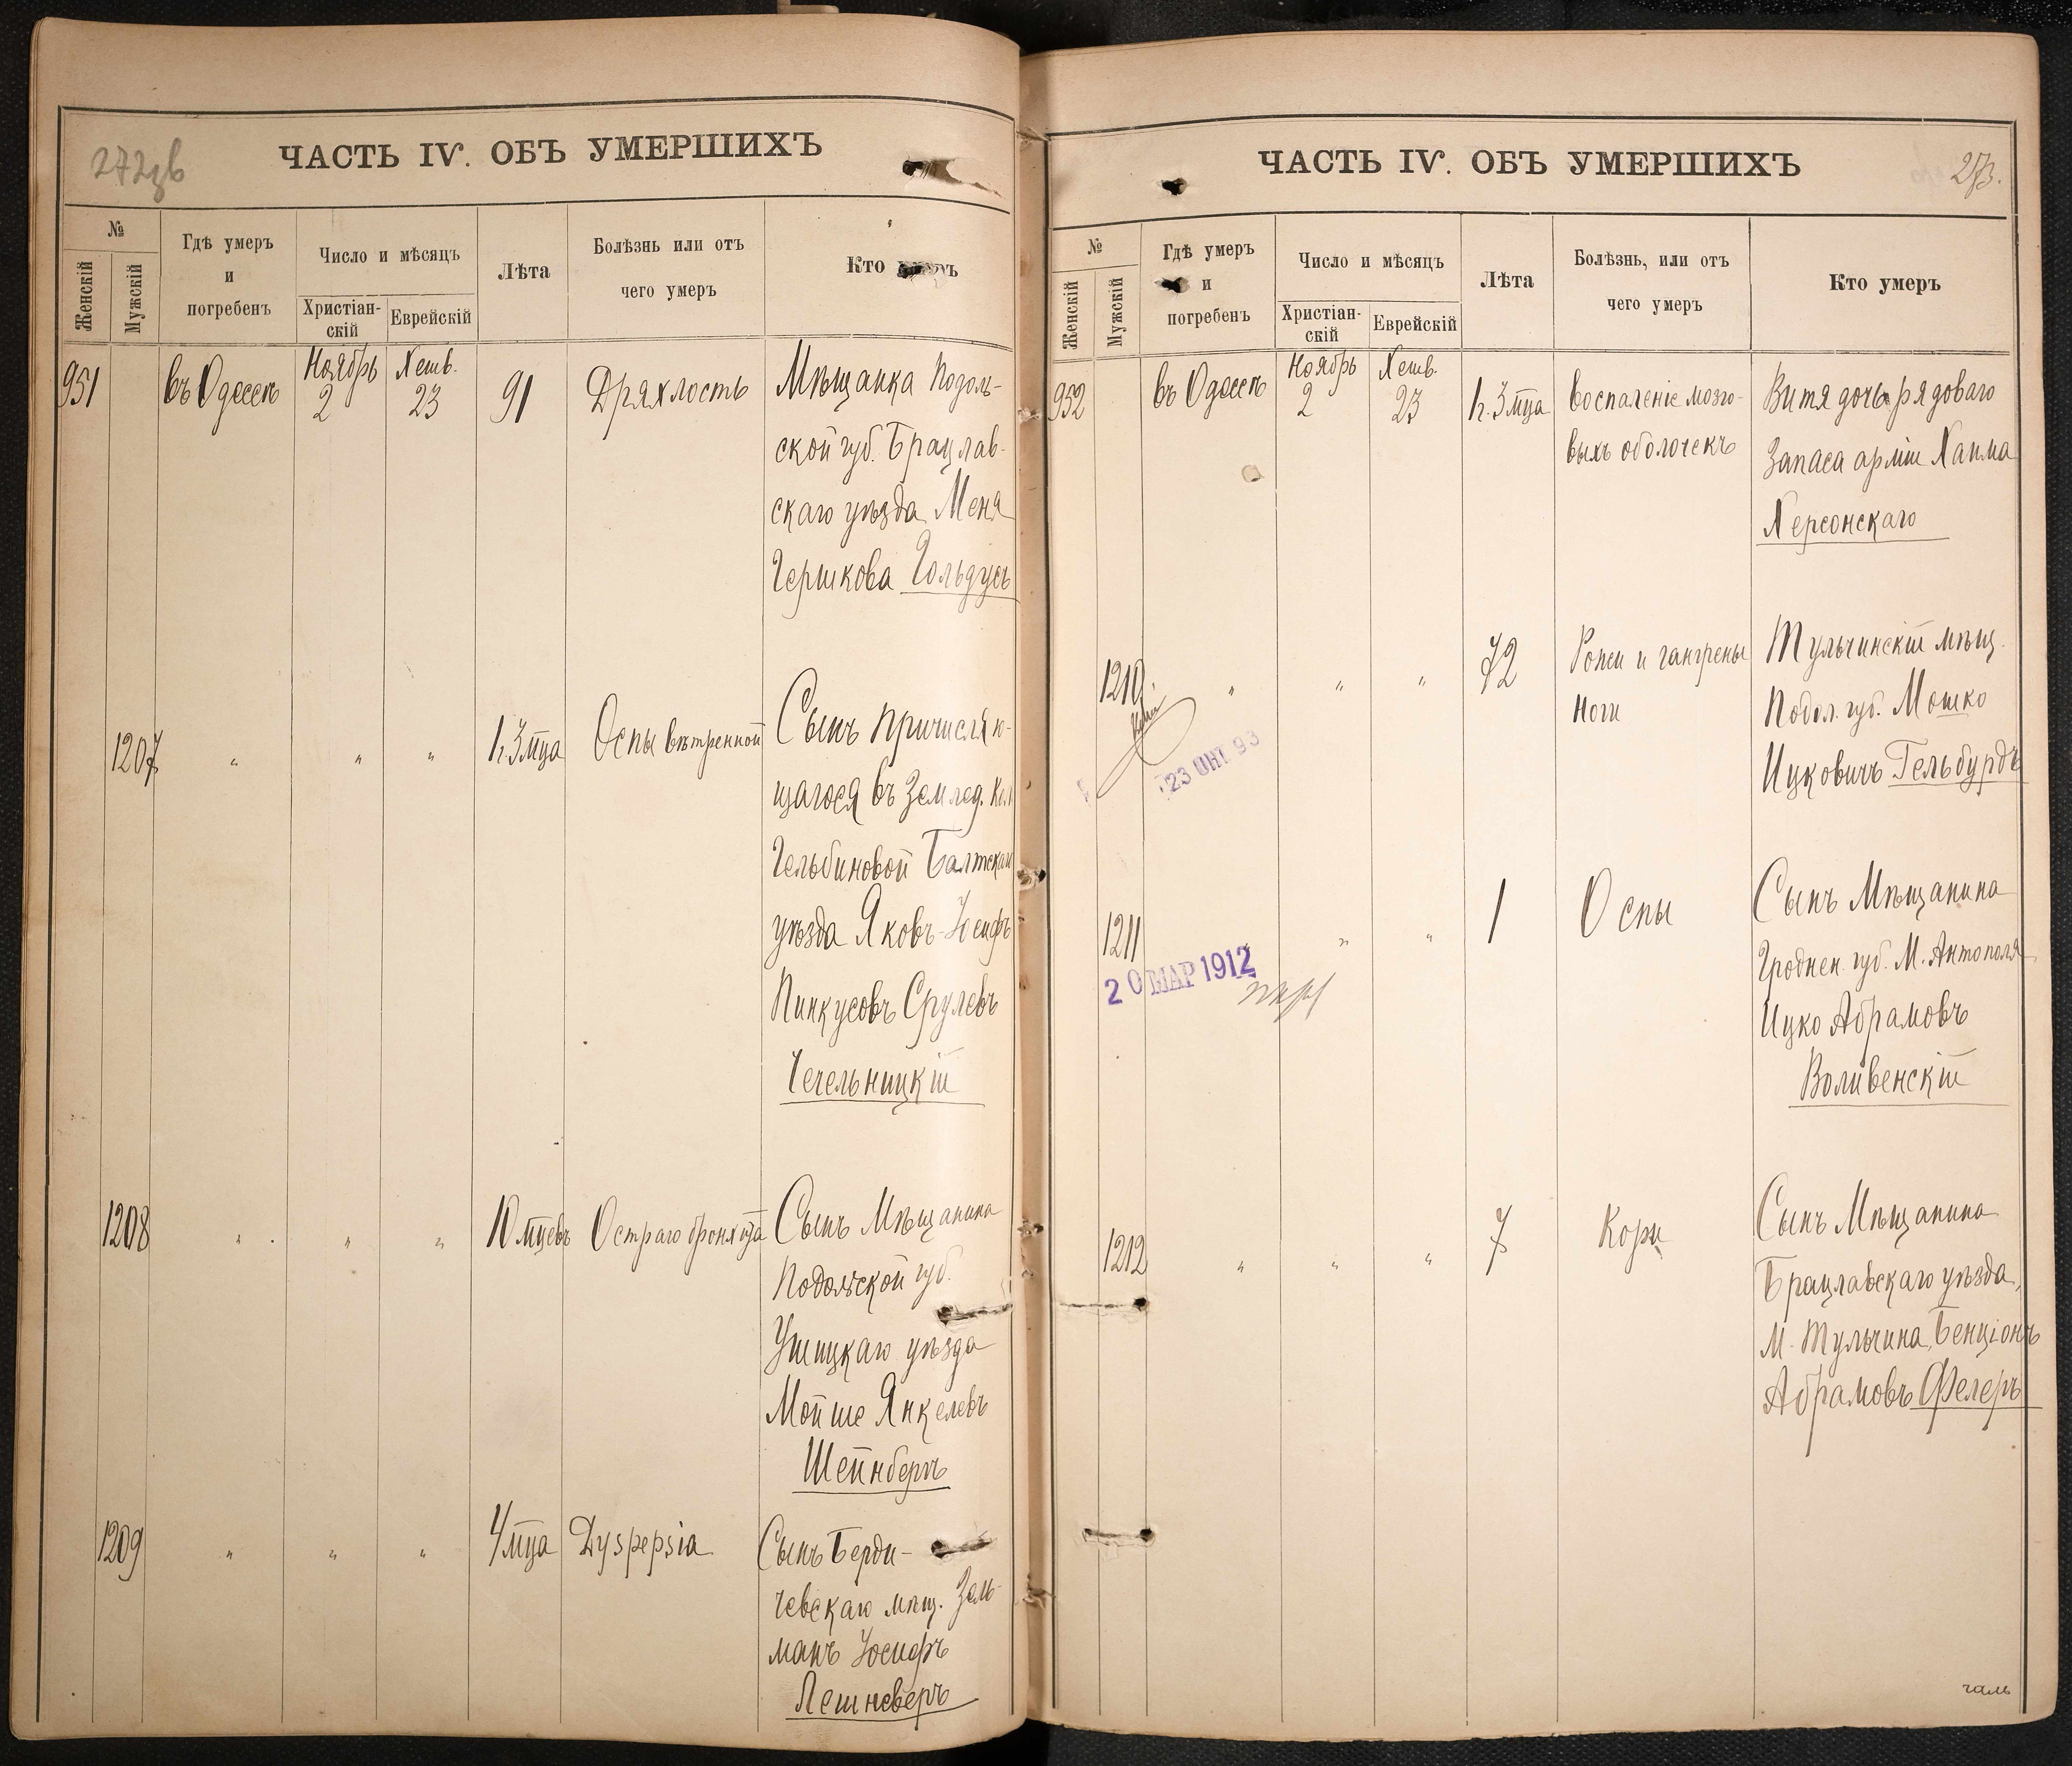 ЧАСТЬ IV. ОБЪ УМЕРШИХЪ
№
Женскій
Мужскій
Гдѣ умеръ
и
погребенъ
Число и мѣсяцъ
Христіан-
скій
Еврейскій
Лѣта
Болѣзнь или отъ
чего умеръ
Кто
951 въ Одессѣ Ноябрь 2 Хешв. 23 91 Дряхлость Мѣщанка Подоль-
ской губ. Брацлав-
скаго уѣзда Меня
Гершкова Гольдусъ
1207 " " " 1 г. 3 мца Оспы вѣтренной Сынъ причисляю-
щагося въ Землед. Кол.
Гельбиновой Балтскаго
уѣзда Яковъ-Іосифъ
Пинкусовъ Срулевъ
Чечельницкій
1208 " " " 10 мцевъ Остраго бронхита Сынъ Мѣщанина
Подольской губ.
Ушицкаго уѣзда
Мойше Янкелевъ
Шейнбергъ
1209 " " " 4 мца Dyspepsia Сынъ Берди-
чевскаго мѣщ. Зель-
манъ Іосифъ
Лешневеръ
ЧАСТЬ IV. ОБЪ УМЕРШИХЪ
273.
№
Женскій
Мужскій
Гдѣ умеръ
и
погребенъ
Число и мѣсяцъ
Христіан-
скій
Еврейскій
Лѣта
Болѣзнь, или отъ
чего умеръ
Кто умеръ
952 въ Одессѣ Ноябрь 2 Хешв. 23 1 г. 3 мца Воспаленіе мозго- Витя дочь рядоваго
выхъ оболочекъ Запаса арміи Хаима
Херсонскаго
1210. " " " 72 Рожи и гангрены Тульчинскій мѣщ.
Ноги Подол. губ. Мошко
Ицковичъ Гельбурдъ
23 ОКТ 93
1211 " " 1 Оспы Сынъ Мѣщанина
Гроднен. губ. М. Антополя
20 МАР 1912
Ицко Абрамовъ
Воливенскій
1212 " " " 7 Кори Сынъ Мѣщанина
Брацлавскаго уѣзда,
М. Тульчина, Бенціонъ
Абрамовъ Фелеръ